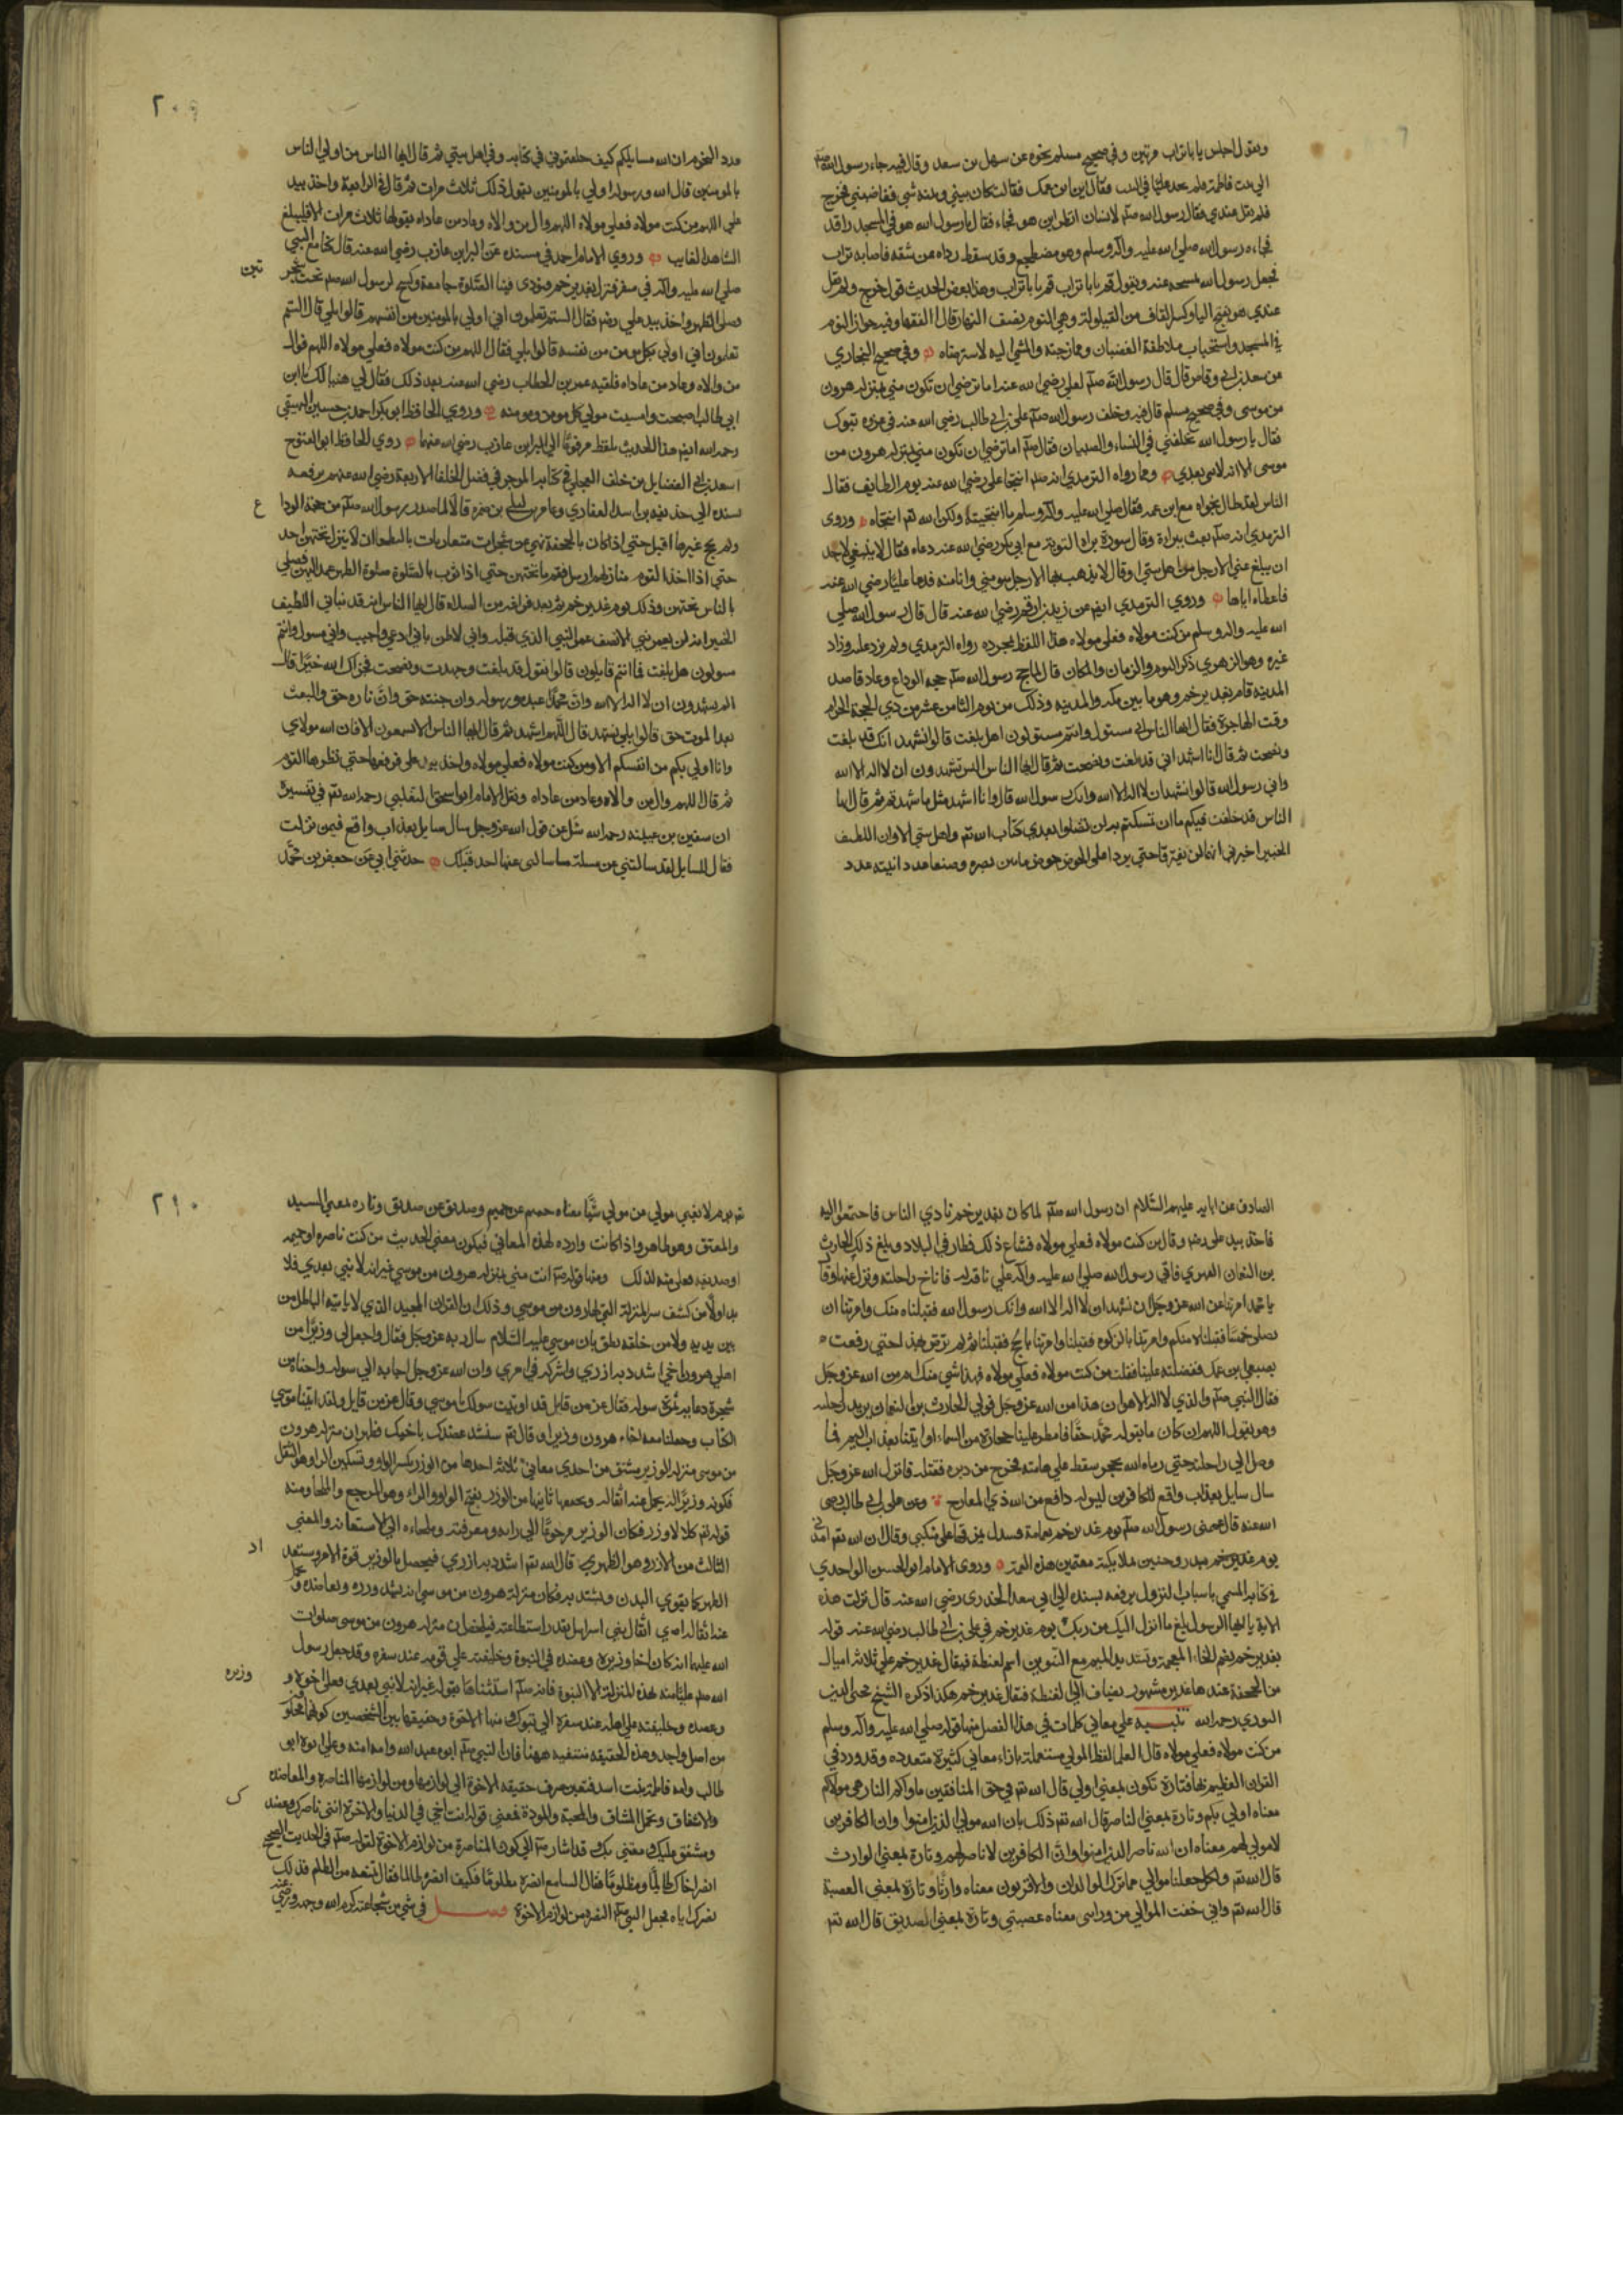 ويقول اجلس يا ابا تراب مرتين وفي صحيح مسلم نحوه عن سهل بن سعد وقال فيه جاء رسول الله صلعم
الي بيت فاطمة فلم يجد عليا في البيت فقال اين ابن عمك فقالت كان بيني وبينه شي فغاضبني فخرج
فلم يقل عندي فقال رسول الله صلعم لانسان انظر اين هو فجاء فقال يا رسول الله هو في المسجد راقد
فجاءه رسول الله صلي الله عليه واله وسلم وهو مضطجع وقد سقط رداه عن شقه فاصابه تراب
فجعل رسول الله يمسحه عنه ويقول قم يا ابا تراب قم يا ابا تراب وهذا بعض الحديث قوله فخرج ولم يقل
عندي هو بفتح اليا وكسر القاف من القيلولة وهي النوم نصف النهار قال الفقها وفيه جواز النوم
في المسجد واستحباب ملاطفة الغضبان وممازحته والمشي اليه لاسترضاه وفي صحيح البخاري
عن سعد بن ابي وقاص قال قال رسول الله صلعم لعلي رضي الله عنه اما ترضي ان تكون مني بمنزلة هرون
من موسى وفي صحيح مسلم قال فيه وخلف رسول الله صلعم علي بن ابي طالب رضي الله عنه في غزوه تبوك
فقال يا رسول الله تخلفني في النساء والصبيان فقال صلعم اما ترضي ان تكون مني بمنزلة هرون من
موسى الا انه لا نبي بعدي ومما رواه الترمذي انه صلعم انتجا علي رضي الله عنه يوم الطايف فقال
الناس لقد طال نجواه مع ابن عمه فقال صلي الله عليه واله وسلم ما انتجيته ولكن الله تعم انتجاه وروى
الترمذي انه صلعم بعث ببراءة وقال سورة براة التوبة مع ابي بكر رضي الله عنه ثم دعاه فقال لا ينبغي لاحد
ان يبلغ عني الا رجل من اهل بيتي او قال لا يذهب بها الا رجل هو مني وانا منه فدعا عليا رضي الله عنه
فاعطاه اياها وروي الترمذي ايضم عن زيد بن ارقم رضي الله عنه قال قال رسول الله صلي
الله عليه واله وسلم من كنت مولاه فعلي مولاه هذا اللفظ بمجرده رواه الترمذي ولم يزد عليه وزاد
غيره وهو الزهري ذكر اليوم والزمان والمكان قال لما حج رسول الله صلعم حجه الوداع وعاد قاصد
المدينة قام بغدير خم وهو ما بين مكه والمدينه وذلك من يوم الثامن عشر من ذي الحجة الحرام
وقت الهاجرة فقال ايها الناس اني مسئول وانتم مسئولون اهل بلغت قالوا نشهد انك قد بلغت
ونصحت ثم قال انا اشهد اني قد بلغت ونصحت ثم قال ايها الناس اليس تشهدون ان لا اله الا الله
واني رسول الله قالوا نشهد ان لا اله الا الله وانك رسول الله قال وانا اشهد مثل ما شهدتم ثم قال ايها
الناس قد خلفت فيكم ما ان تمسكتم به لن تضلوا بعدي كتاب الله تعم واهل بيتي الا وان اللطيف
الخبير اخبرني انهما لن يفترقا حتي يردا علي الحوض حوض ما بين بصره وصنعا عدد انيته عدد
عدد النجوم ان الله مسايلكم كيف خلفتموني في كتابه وفي اهل بيتي ثم قال ايها الناس من اولي الناس
بالمومنين قال الله ورسوله اولي بالمومنين يقول ذلك ثلاث مرات ثم قال في الرابعة واخذ بيد
علي اللهم من كنت مولاه فعلي مولاه اللهم وال من والاه وعاد من عاداه يقولها ثلاث مرات الا فليبلغ
الشاهد الغايب وروي الامام احمد في مسنده عن البراء بن عازب رضي الله عنه قال كنا مع النبي
صلي الله عليه واله في سفر فنزل بغدير خم فنودى فينا الصلوة جامعة وكسح لرسول الله صلعم تحت شجر
تين
وصلي الظهر واخذ بيد علي رضه فقال الستم تعلمون اني اولي بالمومنين من انفسهم قالوا بلي قال الستم
تعلمون اني اولي بكل مومن من نفسه قالوا بلي فقال اللهم من كنت مولاه فعلي مولاه اللهم فوال
من والاه وعاد من عاداه فلقيه عمر بن الخطاب رضي الله عنه بعد ذلك فقال لي هنيا لك يا ابن
ابي طالب اصبحت وامسيت مولي كل مومن ومومنه وروي الحافظ ابو بكر احمد بن حسين البيهقي
رحمه الله ايضم هذا الحديث بلفظه مرفوعا الي البراء بن عازب رضي الله عنهما روي الحافظ ابو الفتوح
اسعد بن ابي الفضايل بن خلف العجلي في كتابه الموجز في فضل الخلفا الاربعة رضي الله عنهم يرفعه
بسنده الي حذيفه بن اسد الغفاري وعامر بن ليلي بن ضمره قالا لما صدر رسول الله صلعم من حجة الودا
ع
ولم يحج غيرها اقبل حتي اذا كان بالجحفة نهي عن شجرات متقاربات بالبطحا ان لا ينزل تحتهن احد
حتي اذا اخذ القوم منازلهم ارسل فقم ما تحتهن حتي اذا نوب بالصلوة صلوة الظهر عمد اليهن فصلي
بالناس تحتهن وذلك يوم غدير خم ثم بعد فراغه من الصلاه قال ايها الناس انه قد نباني اللطيف
الخبير انه لن يعمر نبي الا نصف عمر النبي الذي قبله واني لاظن باني ادعي واجيب واني مسول وانتم
مسولون هل بلغت فما انتم قايلون قالوا نقول قد بلغت وجهدت ونصحت فجزاك الله خيرا قال
الم تشهدون ان لا اله الا الله وان محمدا عبده ورسوله وان جنته حق وان ناره حق والبعث
بعد الموت حق قالوا بلي نشهد قال اللهم اشهد ثم قال ايها الناس الا تسمعون الا فان الله مولاي
وانا اولي بكم من انفسكم الا ومن كنت مولاه فعلي مولاه واخذ بيد علي فرفعها حتي نظرها القوم
ثم قال اللهم وال من والاه وعاد من عاداه ونقل الامام ابو اسحق الثعلبي رحمه الله تعم في تفسيره
ان سفين بن عيينه رحمه الله سئل عن قول الله عز وجل سال سايل بعذاب واقع فيمن نزلت
فقال للسايل لقد سالتني عن مسلة ما سالني عنها احد قبلك حدثني ابي عن جعفر بن محمد
٢٠٩
الصادق عن ابايه عليهم السلام ان رسول الله صلعم لما كان بغدير خم نادي الناس فاجتمعوا اليه
فاخذ بيد علي رضه وقال من كنت مولاه فعلي مولاه فشاع ذلك فطار في البلاد وبلغ ذلك الحارث
بن النعمان الفهري فاتي رسول الله صلي الله عليه واله علي ناقة له فاناخ راحلته ونزل عنها وقا
يا محمد امرتنا عن الله عز وجل ان نشهد ان لا اله الا الله وانك رسول الله فقبلناه منك وامرتنا ان
نصلي خمسا فقبلنا منكم وامرتنا بالزكوه فقبلنا وامرتنا بالحج فقبلنا ثم لم ترض بهذا حتي رفعت
بضبعي ابن عمك ففضلته علينا فقلت من كنت مولاه فعلي مولاه فهذا شي منك ام من الله عز وجل
فقال النبي صلعم والذي لا اله الا هو ان هذا من الله عز وجل فولي الحارث بن النعمان يريد راحلته
وهو يقول اللهم ان كان ما يقوله محمد حقا فامطر علينا حجارة من السماء او ايتنا بعذاب اليم فما
وصل الي راحلته حتي رماه الله بحجر سقط علي هامته فخرج من دبره فقتله فانزل الله عز وجل
سال سايل بعذاب واقع للكافرين ليس له دافع من الله ذي المعارج وعن علي بن ابي طالب رضي
الله عنه قال عممني رسول الله صلعم يوم غدير خم بعمامة فسدل طرفها علي منكبي وقال ان الله تعم امدني
يوم بدر وحنين بملايكة معتمين هذه العمة وروي الامام ابو الحسن الواحدي
في كتابه المسمي باسباب النزول يرفعه بسنده الي ابي سعد الخدري رضي الله عنه قال نزلت هذه
الاية يا ايها الرسول بلغ ما انزل اليك من ربك يوم غدير خم في علي بن ابي طالب رضي الله عنه قوله
بغدير خم بضم الخاء المعجمة وتشديد الميم مع التنوين اسم لغيطة فيقال غدير خم علي ثلاثة اميال
من الجحفة عندها غدير مشهور يضاف الي الغيطة فيقال غدير خم هكذا ذكره الشيخ محي الدين
النووي رحمه الله تنبيه علي معاني كلمات في هذا الفصل منها قوله صلي الله عليه واله وسلم
من كنت مولاه فعلي مولاه قال العلما لفظ المولي مستعملة بازاء معاني كثيرة متعدده وقد ورد في
القران العظيم بها فتارة تكون بمعني اولي قال الله تعم في حق المنافقين ماواكم النار هي مولاكم
معناه اولي بكم وتارة بمعني الناصر قال الله تعم ذلك بان الله مولي الذين امنوا وان الكافرين
لا مولي لهم معناه ان الله ناصر الذين امنوا وان الكافرين لا ناصر لهم وتارة بمعني الوارث
قال الله تعم ولكل جعلنا موالي مما ترك الوالدان والاقربون معناه وارثا وتارة بمعني العصبة
قال الله تعم واني خفت الموالي من وراءى معناه عصبتي وتارة بمعني الصديق قال الله تعم
يوم لا يغني مولي عن مولي شيا معناه حميم عن حميم وصديق عن صديق وتاره بمعني السيد
والمعتق وهو ظاهر واذا كانت وارده لهذه المعاني فيكون معني الحديث من كنت ناصره او حميمه
او صديقه فعلي منه كذلك ومنها قوله صلعم انت مني بمنزلة هرون من موسي غير انه لا نبي بعدي فلا
بد اولا من كشف سر المنزلة التي لهارون من موسي وذلك ان القران المجيد الذي لا ياتيه الباطل من
بين يديه ولا من خلفه نطق بان موسي عليه السلام سال ربه عز وجل فقال واجعل لي وزيرا من
اهلي هرون اخي اشدد به ازري واشركه في امري وان الله عز وجل اجابه الي سوله
فقال عز من قايل قد اوتيت سولك يا موسي وقال عز من قايل ولقد اتينا موسي
الكتاب وجعلنا معه اخاه هرون وزيرا وقال تعم سنشد عضدك باخيك فظهر ان منزلة هرون
من موسى منزلة الوزير مشتق من احدي معاني ثلاثة احدها من الوزر بكسر الواو وتسكين الزا وهو الثقل
فكونه وزيرا له يحمل عنه اثقاله ويخففها ثانيها من الوزر بفتح الواو والزاء وهو المرجع والملجا ومنه
قوله تعم كلا لا وزر فكان الوزير مرجوعا الي رايه ومعرفته وملجاه الي الاستعانه والمعني
الثالث من الازر وهو الظهر قال الله تعم اشدد به ازري فيحصل بالوزير قوة الامر وستعد
اد
الظهر كما يقوي البدن ويشتد به فكان منزلة هرون من موسي انه يشد ازره ويعاضده ويحمل
عنه اثقال بني اسرايل بقدر استطاعته منزلة هرون من موسي صلوات
الله عليهما انه كان اخا وزيره وعضده في النبوة وخليفته علي قومه عند سفره وقد جعل رسول
الله صلعم عليا منه بهذه المنزلة الا النبوة فانه صلعم استثناها بقوله غير انه لا نبي بعدي فعلي اخوه و
وزيره
وعضده وخليفته علي اهله عند سفره الي تبوك ومنها الاخوة وحقيقتها بين الشخصين كونهما مخلو
من اصل واحد وهذه الحقيقه منتفيه ههنا فان النبي صلعم ابوه عبد الله وامه امنه وعلي ابوه ابو
طالب وامه فاطمة بنت اسد فتعين صرف حقيقه الاخوة الي لوازمها ومن لوازمها المناصرة والمعاضده
والاشفاق وتحمل المشاق والمحبة والمودة فمعني قوله انت اخي في الدنيا والاخرة اني ناصرك وعضدك
ك
ومشفق عليك ومعتني بك وقد اشار صلعم الي كون المناصرة من لوازم الاخوة لقوله صلعم في الحديث الصحيح
انصر اخاك ظالما ومظلوما فقال السامع انصره مظلوما فكيف انصره ظالما فقال تمنعه من الظلم فذلك
نصرك اياه فجعل النبي صلعم النصره من لوازم الاخوة فصل في شي من شجاعته كرم الله وجهه ورضي عنه
٢١٠